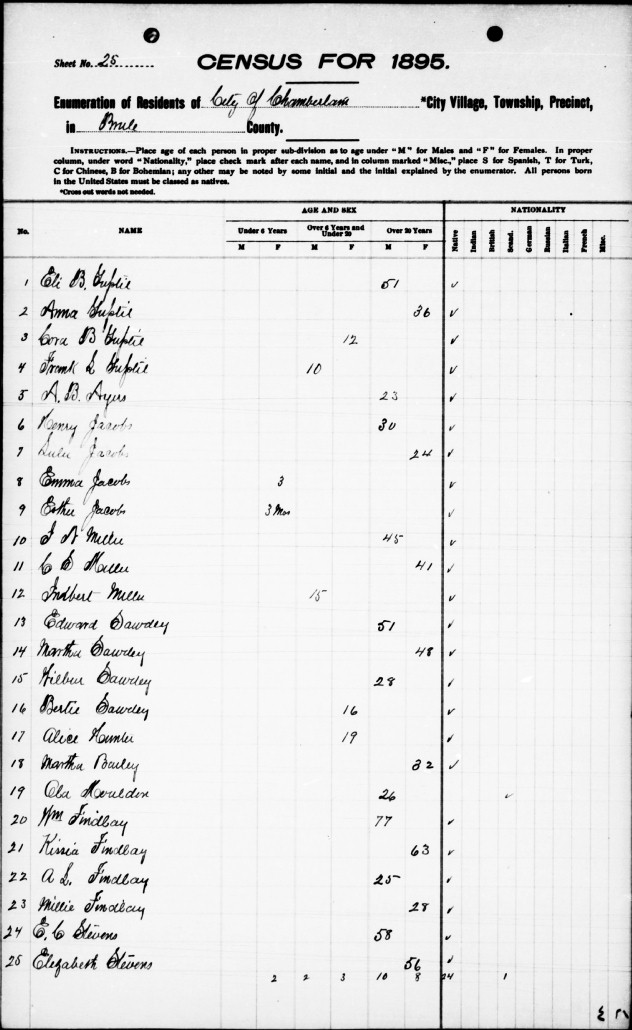 Sheet No. 25
CENSUS FOR 1895.
Enumeration of Residents of City of Chamberlain *City Village, Township, Precinct,
in Brule County.
INSTRUCTIONS.—Place age of each person in proper sub-division as to age under "M" for Males and "F" for Females. In proper
column, under word "Nationality," place check mark after each name, and in column marked "Misc.," place S for Spanish, T for Turk,
C for Chinese, B for Bohemian; any other may be noted by some initial and the initial explained by the enumerator. All persons born
in the United States must be classed as natives.
*Cross out words not needed.
AGE AND SEX NATIONALITY
No. NAME Under 6 Years Over 6 Years and Under 20 Over 20 Years Native Indian British Scand. German Russian Italian French Misc.
M F M F M F
1 Eli B. Guptil 51 ✓
2 Anna Guptil 36 ✓
3 Cora B Guptil 12 ✓
4 Frank L Guptil 10 ✓
5 A. B. Ayers 23 ✓
6 Henry Jacobs 30 ✓
7 Lulu Jacobs 24 ✓
8 Emma Jacobs 3 ✓
9 Esther Jacobs 3 Mos ✓
10 Miller 45 ✓
11 C Miller 41 ✓
12 Miller 15 ✓
13 Edward Sawdey 51 ✓
14 Martha Sawdey 48 ✓
15 Wilbur Sawdey 28 ✓
16 Bertie Sawdey 16 ✓
17 Alice 19 ✓
18 Martha Bailey 32 ✓
19 Ola 26 ✓
20 Wm Findlay 77 ✓
21 Kissia Findlay 63 ✓
22 A L. Findlay 25 ✓
23 Millie Findlay 28 ✓
24 E. C Stevens 58 ✓
25 Elizabeth Stevens 56 ✓
2 2 3 10 8 24 1